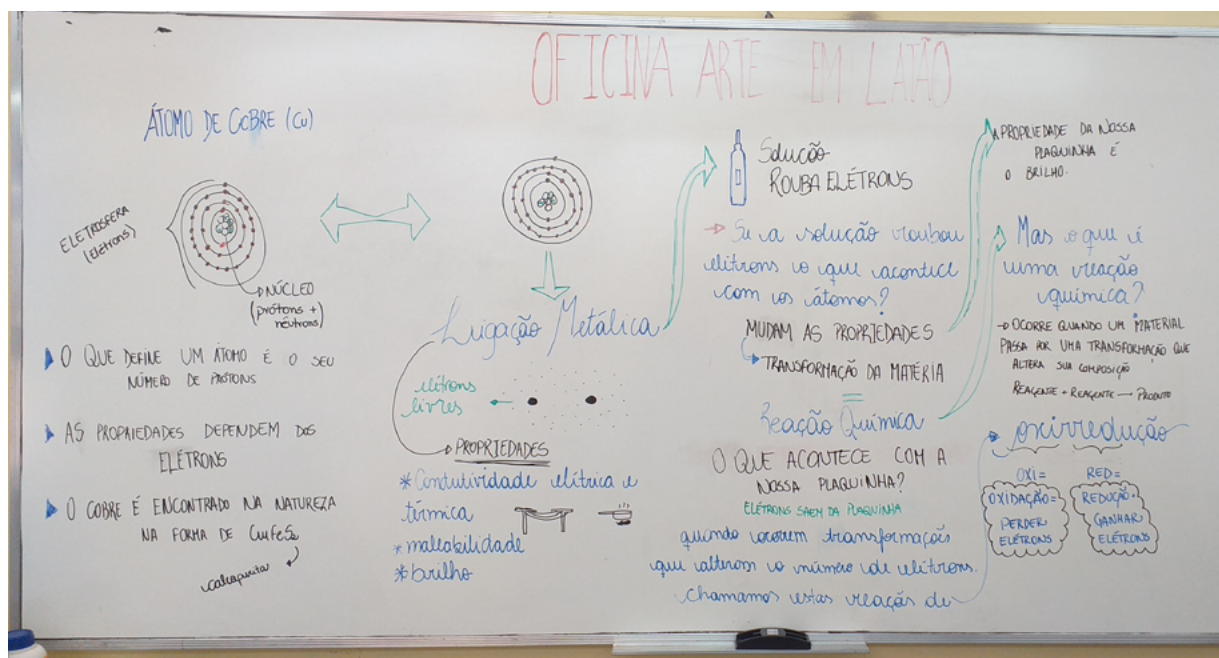 OFICINA ARTE EM LATÃO
ÁTOMO DE COBRE (Cu)
ELETROSFERA
(Elétrons)
NÚCLEO
(prótons +
nêutrons)
O QUE DEFINE UM ÁTOMO É O SEU
NÚMERO DE PRÓTONS
AS PROPRIEDADES DEPENDEM DOS
ELÉTRONS
O COBRE É ENCONTRADO NA NATUREZA
NA FORMA DE CuFeS2
calcopirita
Ligação Metálica
elétrons
livres
PROPRIEDADES
* Condutividade elétrica e
térmica
* maleabilidade
* brilho
Solução
ROUBA ELÉTRONS
→ Se a solução roubou
elétrons o que acontece
com os átomos?
MUDAM AS PROPRIEDADES
TRANSFORMAÇÃO DA MATÉRIA
=
Reação Química
O QUE ACONTECE COM A
NOSSA PLAQUINHA?
ELÉTRONS SAEM DA PLAQUINHA
quando ocorrem transformações
que alteram o número de elétrons.
chamamos estas reaçãs de
A PROPRIEDADE DA NOSSA
PLAQUINHA É
O BRILHO.
Mas o que é
uma reação
química?
→ OCORRE QUANDO UM MATERIAL
PASSA POR UMA TRANSFORMAÇÃO QUE
ALTERA SUA COMPOSIÇÃO
REAGENTE + REAGENTE → PRODUTO
oxirredução
OXI=
OXIDAÇÃO=
PERDER
ELÉTRONS
RED=
REDUÇÃO=
GANHAR
ELÉTRONS